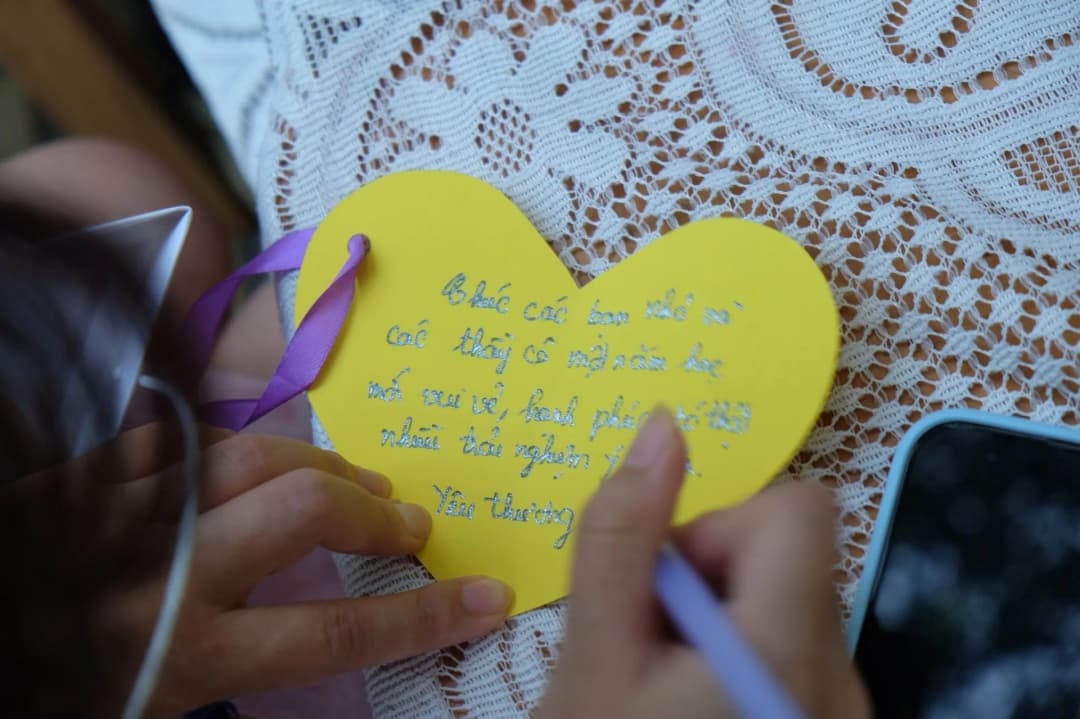 Chúc các bạn nhỏ và
các thầy cô một năm học
mới vui vẻ, hạnh phúc, có thật
nhiều trải nghiệm
Yêu thương